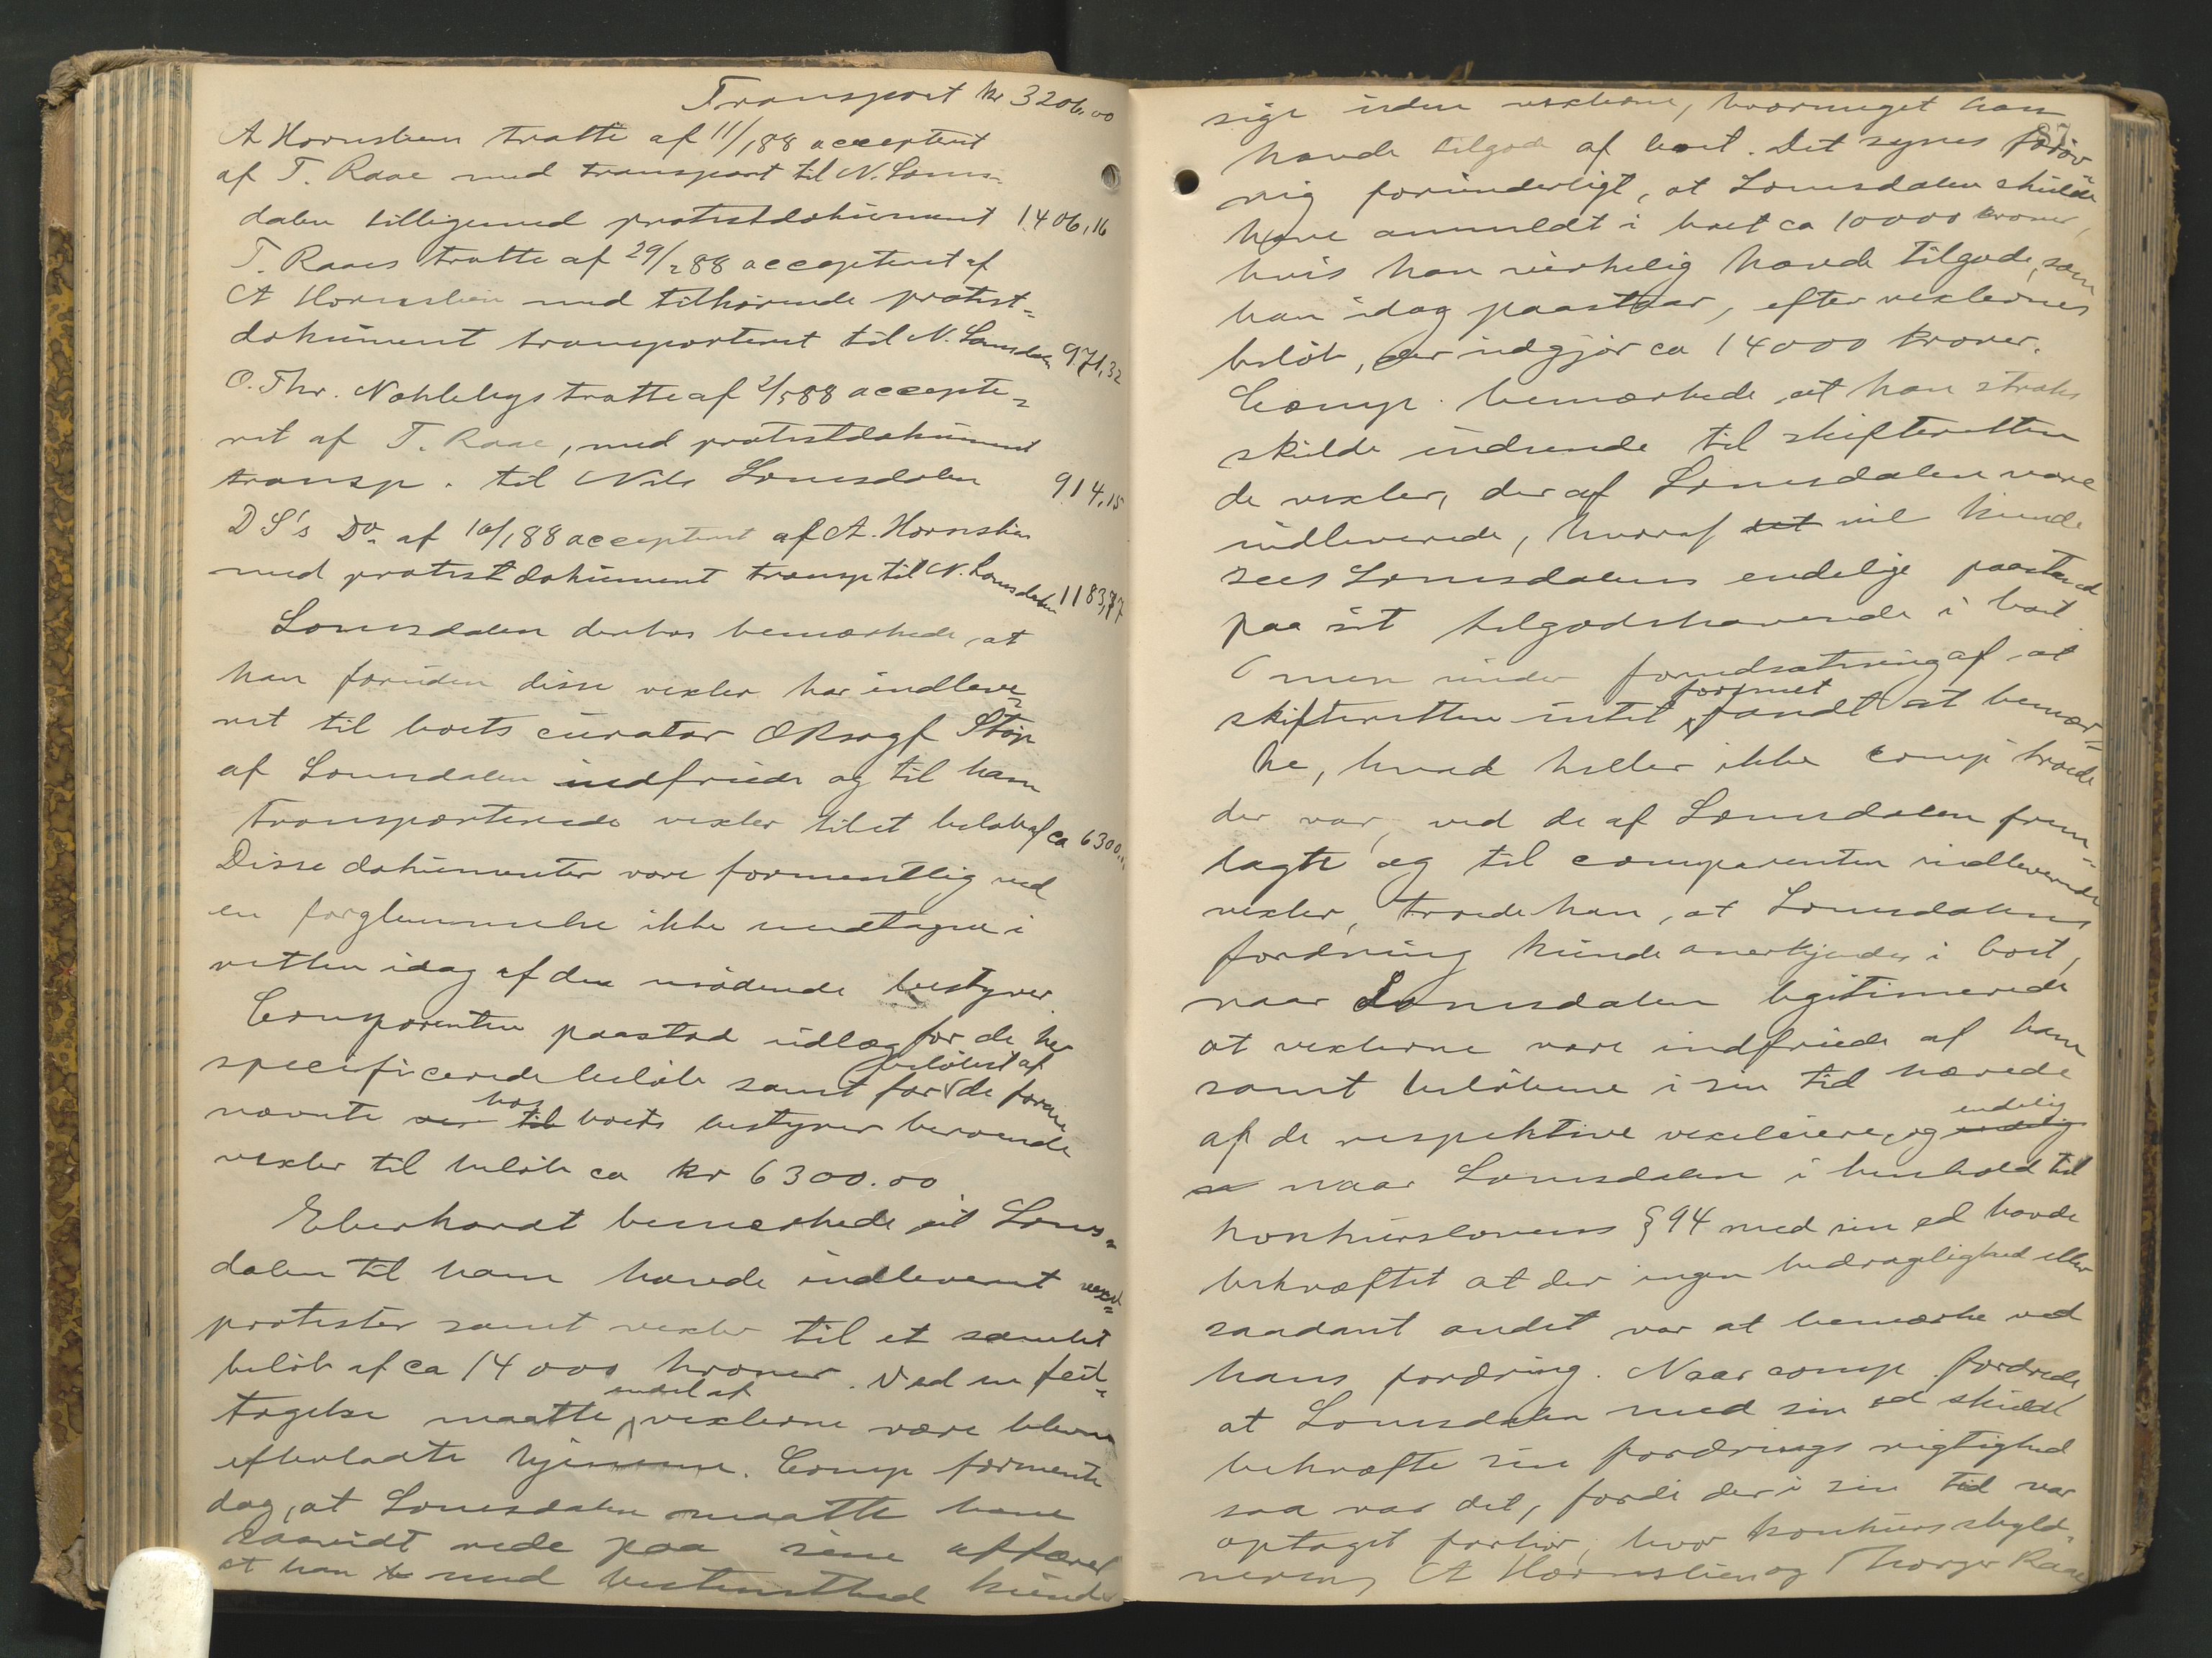 Transport kr 3206.00
A Hornslien tratte af 11/1 88 acceptert
af T. Raae med transport til N. Loms=
dalen tilligemed protestdokument 1406,16
T. Raaes tratte af 29/2 88 acceptert af
A Hornslien med tilhørende protest=
dokument transportert til N. Lomsdalen 971,32
O. Thr. Nohlebys tratte af 2/5 88 accepte=
ret af T. Raae, med protestdokument
transp. til Nils Lomsdalen 914,15
D S's Do. af 10/1 88 acceptert af A. Hornslien
med protestdokument transp til N. Lomsdalen 1183,77
Lomsdalen derhos bemærkede, at
han foruden disse vexler har indleve=
ret til boets curator ORsagf Støp
af Lomsdalen indfriede og til ham
transporterede vexler til et beløb af ca 6300.00
Disse dokumenter vare formentlig ved
en forglemmelse ikke medtagne i
retten idag af den mødende bestyrer.
Comparenten paastod udlæg for de her
specificerede beløb samt for beløbet af de foran
nævnte ver til hos boets bestyrer beroende
vexler til beløb ca kr 6300.00
Eberhardt bemærkede at Loms=
dalen til ham havde indleveret vexel=
protester samt vexler til et samlet
beløb af ca 14000 kroner. Ved en feil=
tagelse maatte endel af vexlerne være blevne
efterladte hjemme. Comp formente
dog, at Lomsdalen maatte have
saavidt rede paa sine affærer
at han med bestemthed kunde
87
sige uden vexlerne, hvormeget han
havde tilgode af boet. Det synes forøv=
rig forunderligt, at Lomsdalen skulde
have anmeldt i boet ca 10000 kroner,
hvis han virkelig havde tilgode, som
han idag paastaar, efter vexlernes
beløb, der udgjør ca 14000 kroner.
Comp. bemærkede at han straks
skulde indsende til skifteretten
de vexler, der af Lomsdalen vare
indleverede, hvoraf det vil kunde
sees Lomsdalens endelige paastand
paa sit tilgodehavende i boet.
men under forudsætning af at
skifteretten intet formet fandt at bemær=
ke, hvad heller ikke comp troede
der var, ved de af Lomsdalen frem=
lagte og til comparenten indleverede
vexler, troede han, at Lomsdalens
fordring kunde anerkjendes i boet,
naar Lomsdalen legitimerede
at vexlerne vare indfriede af ham
samt beløbene i sin tid hævede
af de respektive vexeleiere, og endelig endelig
naar Lomsdalen i henhold til
konkurslovens § 94 med sin ed havde
bekræftet at der ingen bedragelighed eller
saadant andet var at bemærke ved
hans fordring. Naar comp. fordrede
at Lomsdalen med sin ed skulde
bekræfte sin fordrings rigtighed
saa var det, fordi der i sin tid var
optaget forhør, hvor konkursskyld=
nerens A Hornslien og Thorger Raae